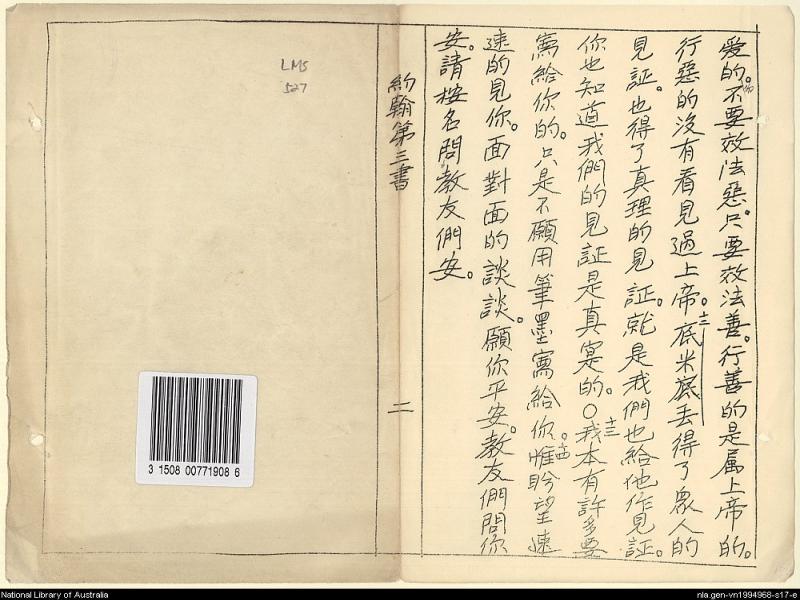 爱的。十一不要效法惡。只要效法善。行善的是属上帝的。
行惡的没有看見過上帝。十二底米底丟得了衆人的
見証。也得了真理的見証。就是我們也給他作見証。
你也知道我們的見証是真寔的。〇十三我本有許多要
寫給你的。只是不願用筆墨寫給你。十四惟盼望速
速的見你。面對面的談談。願你平安。教友們問你
安。請按名問教友們安。
約翰第三書
二
LMS
527
3 1508 00771908 6
National Library of Australia
nla.gen-vn1994968-s17-e